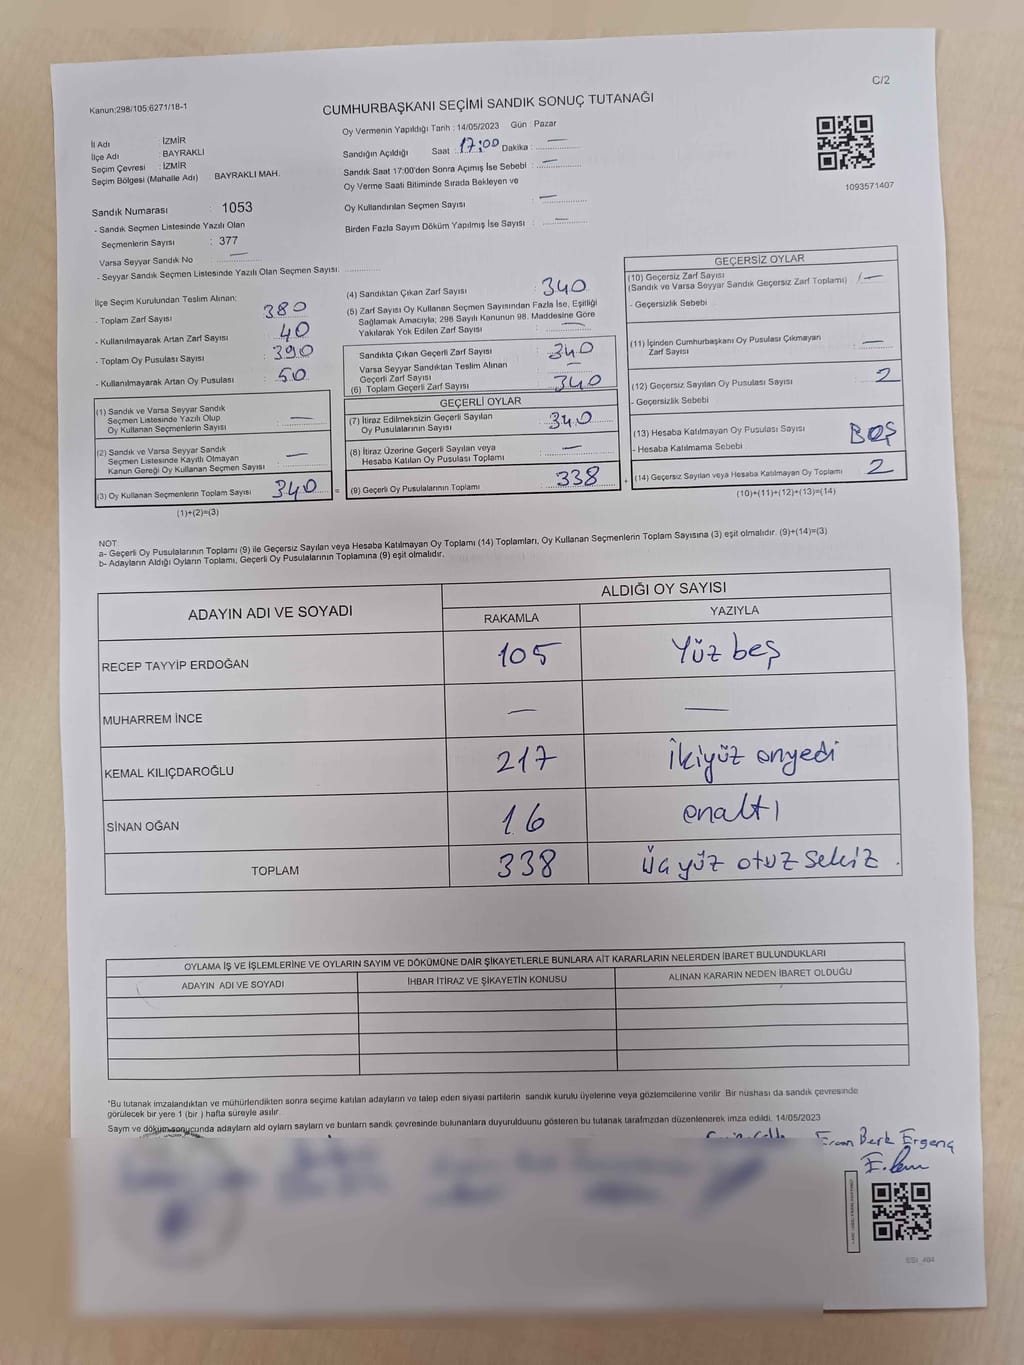 C/2
Kanun;298/105;6271/18-1
CUMHURBAŞKANI SEÇİMİ SANDIK SONUÇ TUTANAĞI
İl Adı : İZMİR
İlçe Adı : BAYRAKLI
Seçim Çevresi : İZMİR
Seçim Bölgesi (Mahalle Adı) BAYRAKLI MAH.
Sandık Numarası : 1053
- Sandık Seçmen Listesinde Yazılı Olan
Seçmenlerin Sayısı : 377
Varsa Seyyar Sandık No : —
- Seyyar Sandık Seçmen Listesinde Yazılı Olan Seçmen Sayısı:
Oy Vermenin Yapıldığı Tarih : 14/05/2023 Gün : Pazar
Sandığın Açıldığı Saat : 17:00 Dakika : —
Sandık Saat 17:00'den Sonra Açımış İse Sebebi : —
Oy Verme Saati Bitiminde Sırada Bekleyen ve
Oy Kullandırılan Seçmen Sayısı : —
Birden Fazla Sayım Döküm Yapılmış İse Sayısı : —
1093571407
İlçe Seçim Kurulundan Teslim Alınan;
- Toplam Zarf Sayısı : 380
- Kullanılmayarak Artan Zarf Sayısı : 40
- Toplam Oy Pusulası Sayısı : 390
- Kullanılmayarak Artan Oy Pusulası : 50
(1) Sandık ve Varsa Seyyar Sandık
Seçmen Listesinde Yazılı Olup
Oy Kullanan Seçmenlerin Sayısı : —
(2) Sandık ve Varsa Seyyar Sandık
Seçmen Listesinde Kayıtlı Olmayan
Kanun Gereği Oy Kullanan Seçmen Sayısı : —
(3) Oy Kullanan Seçmenlerin Toplam Sayısı : 340 =
(1)+(2)=(3)
(4) Sandıktan Çıkan Zarf Sayısı : 340
(5) Zarf Sayısı Oy Kullanan Seçmen Sayısından Fazla İse, Eşitliği
Sağlamak Amacıyla; 298 Sayılı Kanunun 98. Maddesine Göre
Yakılarak Yok Edilen Zarf Sayısı : —
Sandıkta Çıkan Geçerli Zarf Sayısı : 340
Varsa Seyyar Sandıktan Teslim Alınan
Geçerli Zarf Sayısı : —
(6) Toplam Geçerli Zarf Sayısı : 340
GEÇERLİ OYLAR
(7) İtiraz Edilmeksizin Geçerli Sayılan
Oy Pusulalarının Sayısı : 340
(8) İtiraz Üzerine Geçerli Sayılan veya
Hesaba Katılan Oy Pusulası Toplamı : —
(9) Geçerli Oy Pusulalarının Toplamı : 338 +
GEÇERSİZ OYLAR
(10) Geçersiz Zarf Sayısı
(Sandık ve Varsa Seyyar Sandık Geçersiz Zarf Toplamı) —
- Geçersizlik Sebebi :
(11) İçinden Cumhurbaşkanı Oy Pusulası Çıkmayan
Zarf Sayısı : —
(12) Geçersiz Sayılan Oy Pusulası Sayısı : 2
- Geçersizlik Sebebi :
(13) Hesaba Katılmayan Oy Pusulası Sayısı : BOŞ
- Hesaba Katılmama Sebebi :
(14) Geçersiz Sayılan veya Hesaba Katılmayan Oy Toplamı : 2
(10)+(11)+(12)+(13)=(14)
NOT:
a- Geçerli Oy Pusulalarının Toplamı (9) ile Geçersiz Sayılan veya Hesaba Katılmayan Oy Toplamı (14) Toplamları, Oy Kullanan Seçmenlerin Toplam Sayısına (3) eşit olmalıdır. (9)+(14)=(3)
b- Adayların Aldığı Oyların Toplamı, Geçerli Oy Pusulalarının Toplamına (9) eşit olmalıdır.
ADAYIN ADI VE SOYADI
ALDIĞI OY SAYISI
RAKAMLA YAZIYLA
RECEP TAYYİP ERDOĞAN 105 Yüz beş
MUHARREM İNCE — —
KEMAL KILIÇDAROĞLU 217 İkiyüz onyedi
SİNAN OĞAN 16 onaltı
TOPLAM 338 üçyüz otuz sekiz.
OYLAMA İŞ VE İŞLEMLERİNE VE OYLARIN SAYIM VE DÖKÜMÜNE DAİR ŞİKAYETLERLE BUNLARA AİT KARARLARIN NELERDEN İBARET BULUNDUKLARI
ADAYIN ADI VE SOYADI İHBAR İTİRAZ VE ŞİKAYETİN KONUSU ALINAN KARARIN NEDEN İBARET OLDUĞU
*Bu tutanak imzalandıktan ve mühürlendikten sonra seçime katılan adayların ve talep eden siyasi partilerin sandık kurulu üyelerine veya gözlemcilerine verilir. Bir nüshası da sandık çevresinde
görülecek bir yere 1 (bir ) hafta süreyle asılır.
Sayım ve döküm sonucunda adayların ald oyların sayıları ve bunların sandık çevresinde bulunanlara duyurulduunu gösteren bu tutanak tarafmzdan düzenlenerek imza edildi. 14/05/2023
Berk Ergenç
ESI_404